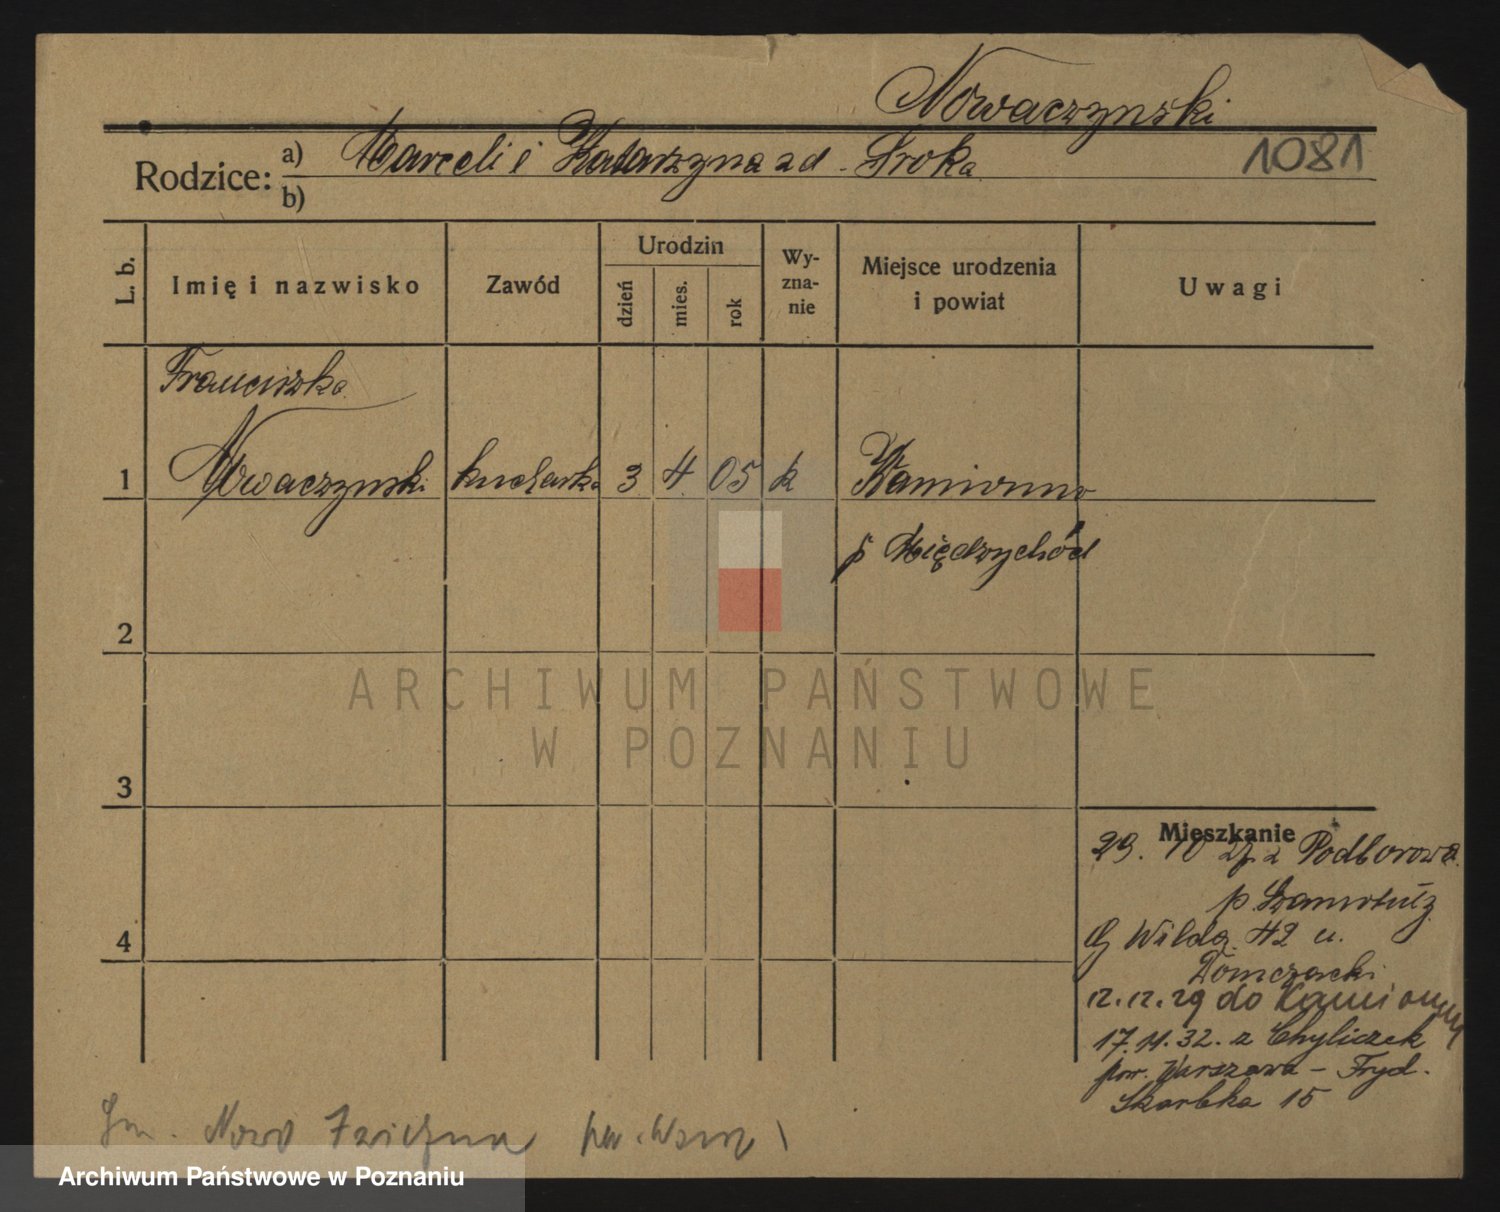 Nowaczynski
Rodzice: a) Marceli i Katarzyna zd. Sroka
1081
b)
L. b.
Imię i nazwisko
Zawód
Urodzin
dzień
mies.
rok
Wy-
zna-
nie
Miejsce urodzenia
i powiat
Uwagi
Franciszka
1 Nowaczynski kucharka 3 4 05 k Kamionna
p Międzychód
2
ARCHIWUM PAŃSTWOWE
W POZNANIU
3
Mieszkanie
29. 10 27. z Podborowa
p. Szamotuły
4
G Wilda 42 u.
Tomczacki
12.12.29 do Kamionny
17.11.32. z Chyliczek
pow. Warszawa - Fryd.
Skarbka 15
Gm. Nowo
Archiwum Państwowe w Poznaniu